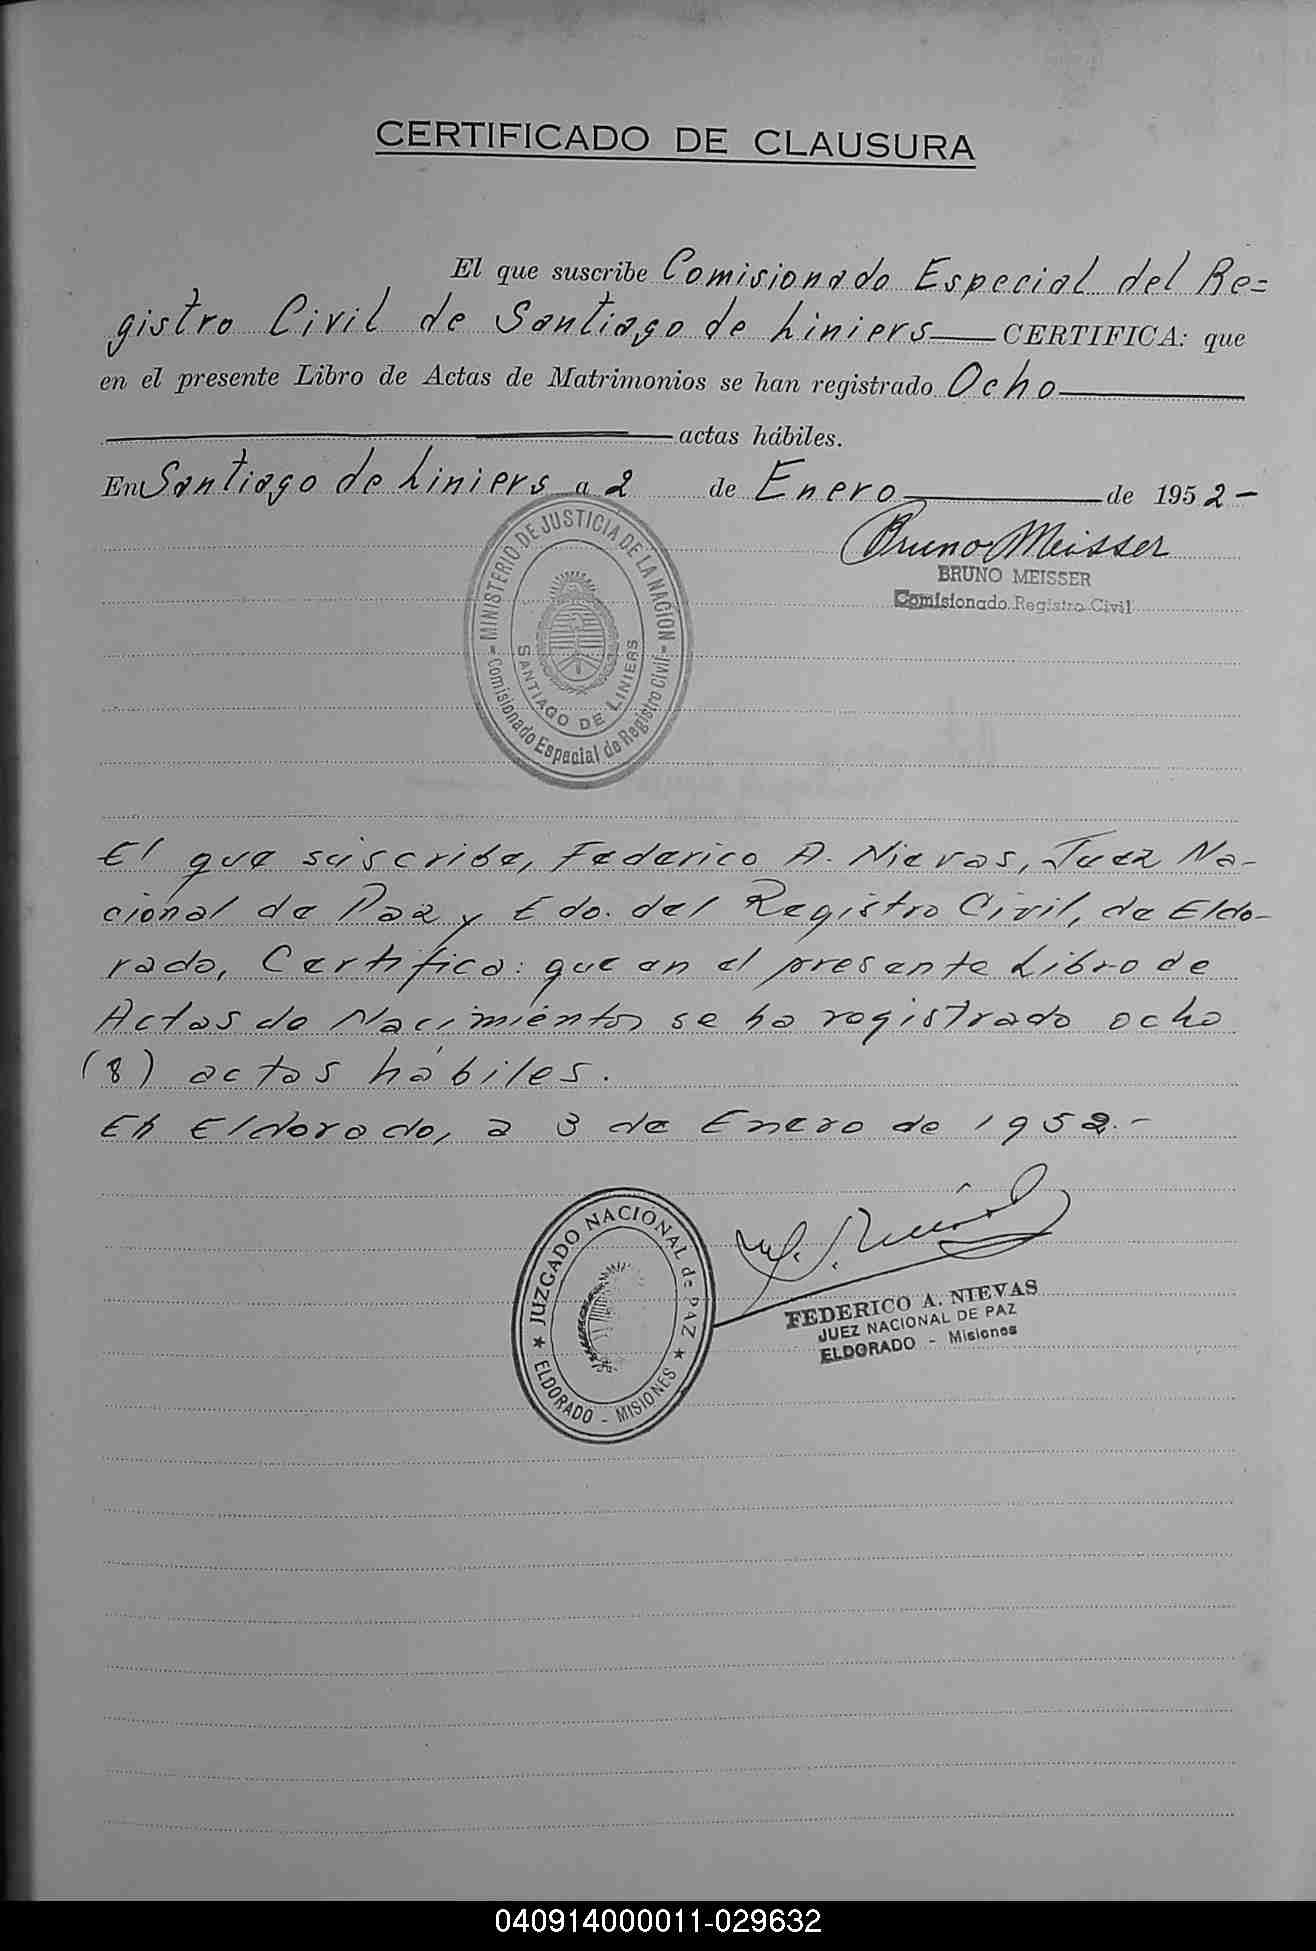 CERTIFICADO DE CLAUSURA
El que suscribe Comisionado Especial del Re=
gistro Civil de Santiago de Liniers CERTIFICA: que
en el presente Libro de Actas de Matrimonios se han registrado Ocho
actas hábiles.
En Santiago de Liniers a 2 de Enero de 1952-
Bruno Meisser
BRUNO MEISSER
Comisionado Registro Civil
MINISTERIO DE JUSTICIA DE LA NACIÓN
SANTIAGO DE LINIERS
Comisionado Especial de Registro Civil
El que suscribe, Federico A. Nievas, Juez Na-
cional de Paz y Edo. del Registro Civil, de Eldo-
rado, Certifica: que en el presente Libro de
Actas de Nacimientos se ha registrado ocho
(8) actas hábiles.
En Eldorado, a 3 de Enero de 1952.-
JUZGADO NACIONAL de PAZ
ELDORADO - MISIONES
FEDERICO A. NIEVAS
JUEZ NACIONAL DE PAZ
ELDORADO - Misiones
040914000011-029632